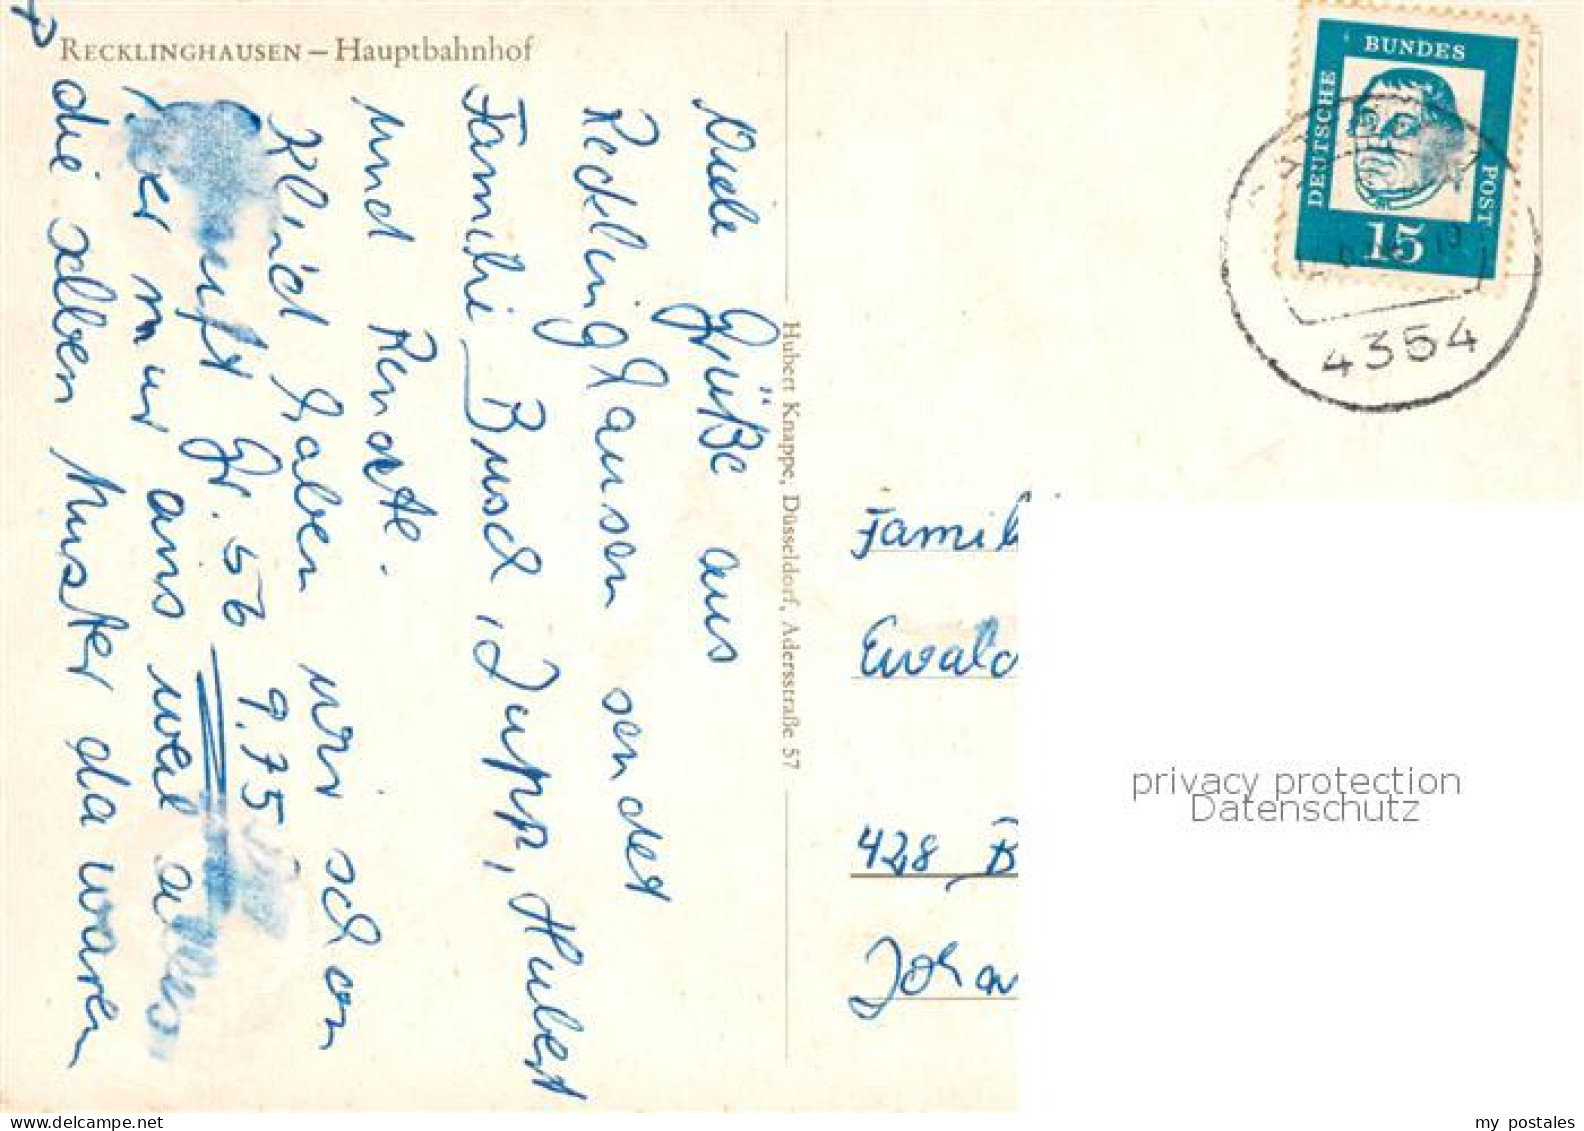 RECKLINGHAUSEN – Hauptbahnhof
Viele Grüße aus
Recklinghausen sendet
Familie Busch, Jupp, Hubert
und Renate.
haben wir schon
Gr. 56 9,75
mir aus weil alles
die selben Muster da waren
Hubert Knappe, Düsseldorf, Adersstraße 57
DEUTSCHE BUNDES POST
15
4354
Famili
Ewald
428 B
Johan
privacy protection
Datenschutz
my postales